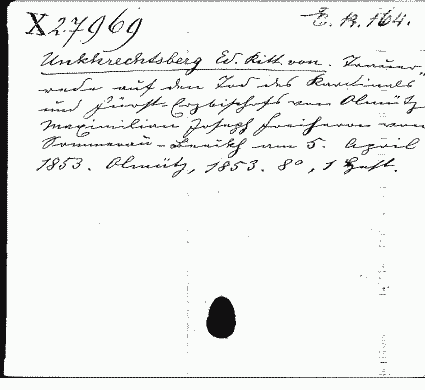 X 27969
E. R. 164.
Unkhrechtsberg Ed. Ritt. von. Trauer-
rede auf den Tod des Kardinals
und Fürst-Erzbischofs von Olmütz
Maximilian Joseph Freiherrn von
Sommerau-Beeckh am 5. April
1853. Olmütz, 1853. 8°, 1 Heft.